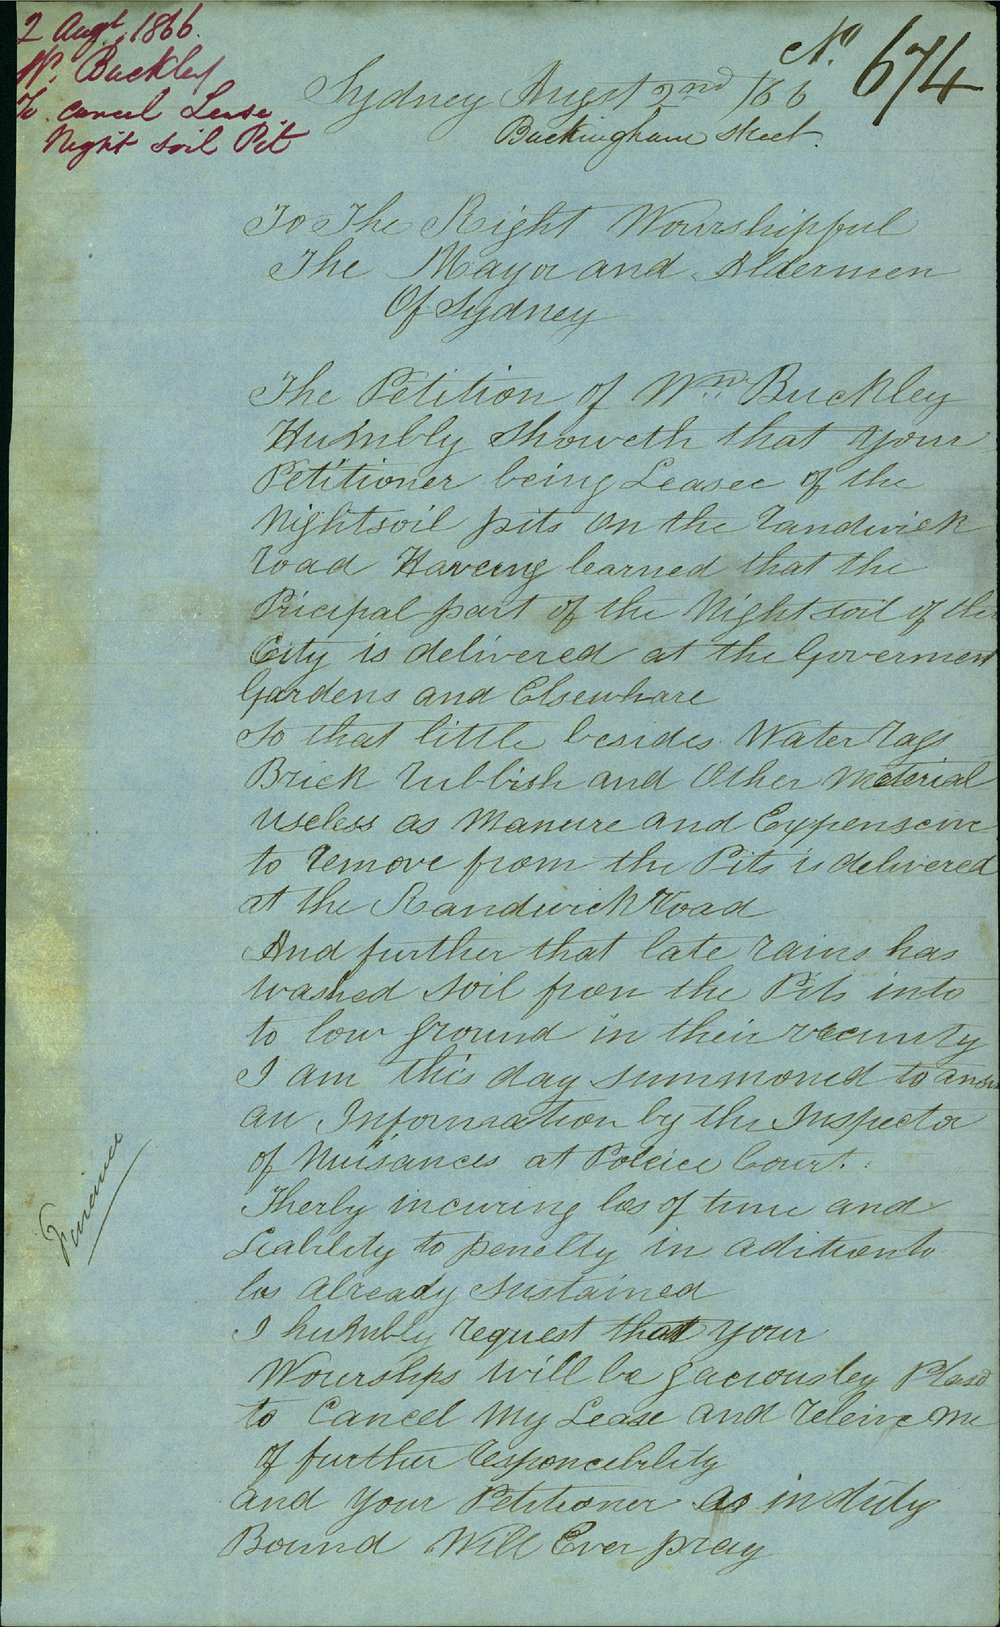 2 Augt 1866.
W. Buckley
To cancel Lease
Night soil Pit
No. 674
Sydney Augst 2nd /66
Buckingham Street.
To The Right Wourshipful
The Mayor and Aldermen
Of Sydney
The Petition of Wm Buckley
Humbly Showeth that your
Petitioner being Leasee of the
Nightsoil pits on the Randwick
road Haveing learned that the
Pricipal part of the Nightsoil of the
City is delivered at the Goverment
Gardens and Elsewhare
So that little besides Water Rags
Brick Rubbish and Other Material
useless as Manure and Expenscive
to Remove from the Pits is delivered
at the Randwick Road
And further that late rains has
washed soil from the Pits into
to low ground in their vecinity
I am this day summoned to answ
an Information by the Inspector
of Nuisances at Poleice Court.
Therby incuring los of time and
Liability to penelty in adition to
los Already Sustained
I humbly request that your
Wourships will be gaciousley Plasd
to Cancel My Lease and releive Me
of further Responcebility
and your Petitioner as in duty
Bound Will Ever pray
Finance